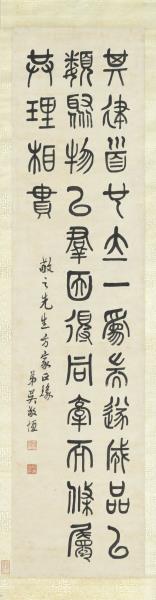 其建首也立一為耑遂成品以
類聚物以羣而得同牽而條屬
共理相貫
敬之先生方家正
弟吳敬恆